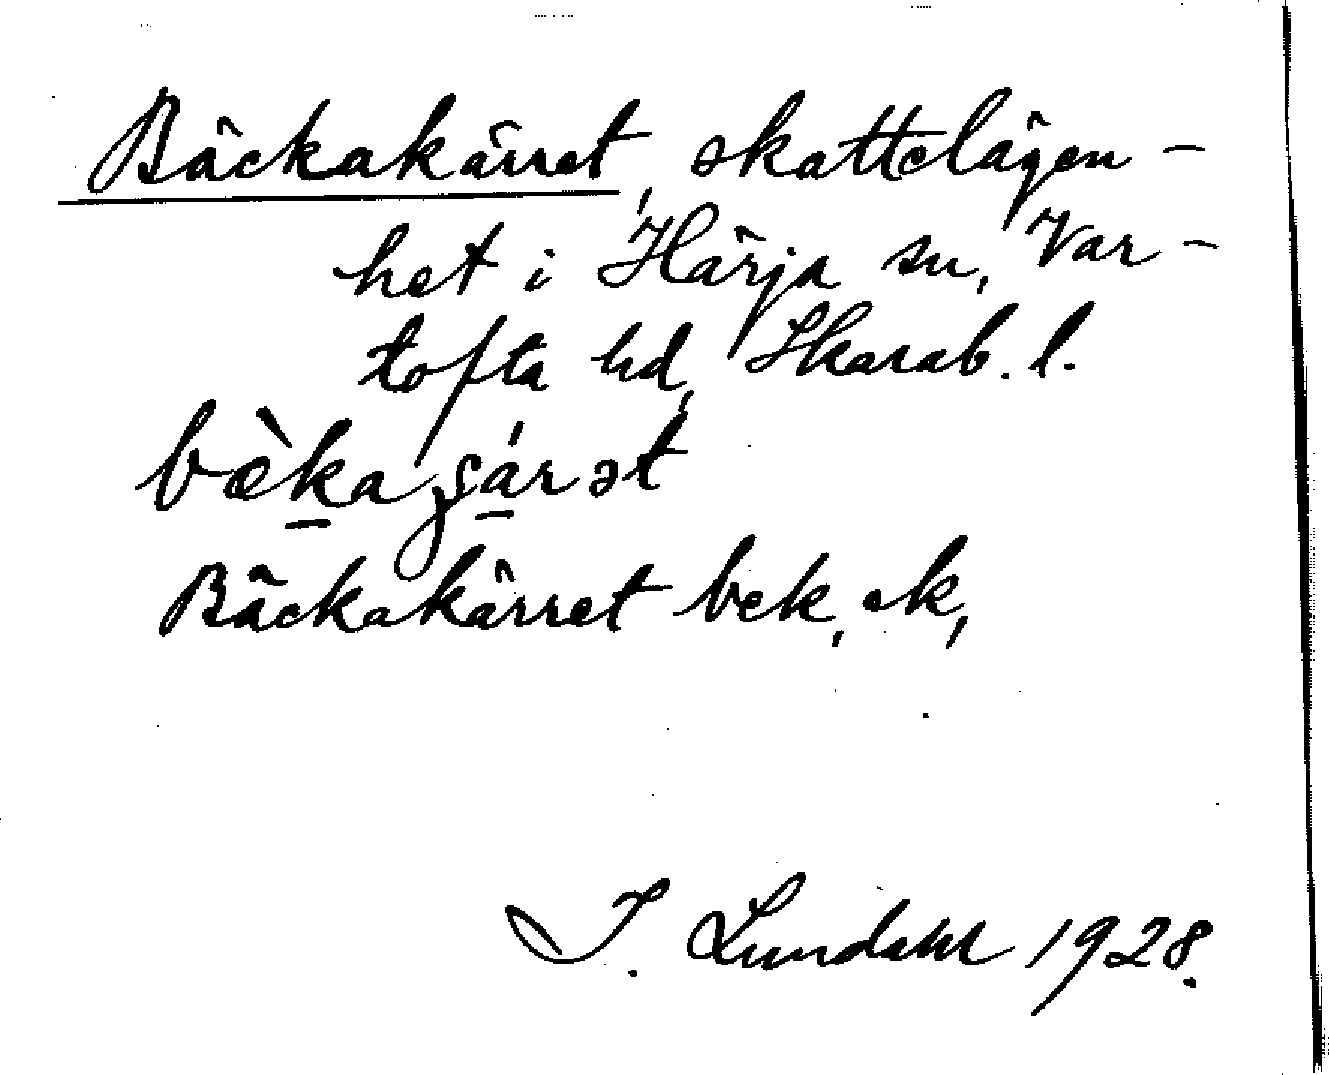 Bäckakärret, skattelägen-
het i Härja sn, Var-
tofta hd, Skarab. l.
bæ̀ka ʃárət
Bäckakärret bek, ek,
I. Lundahl 1928.